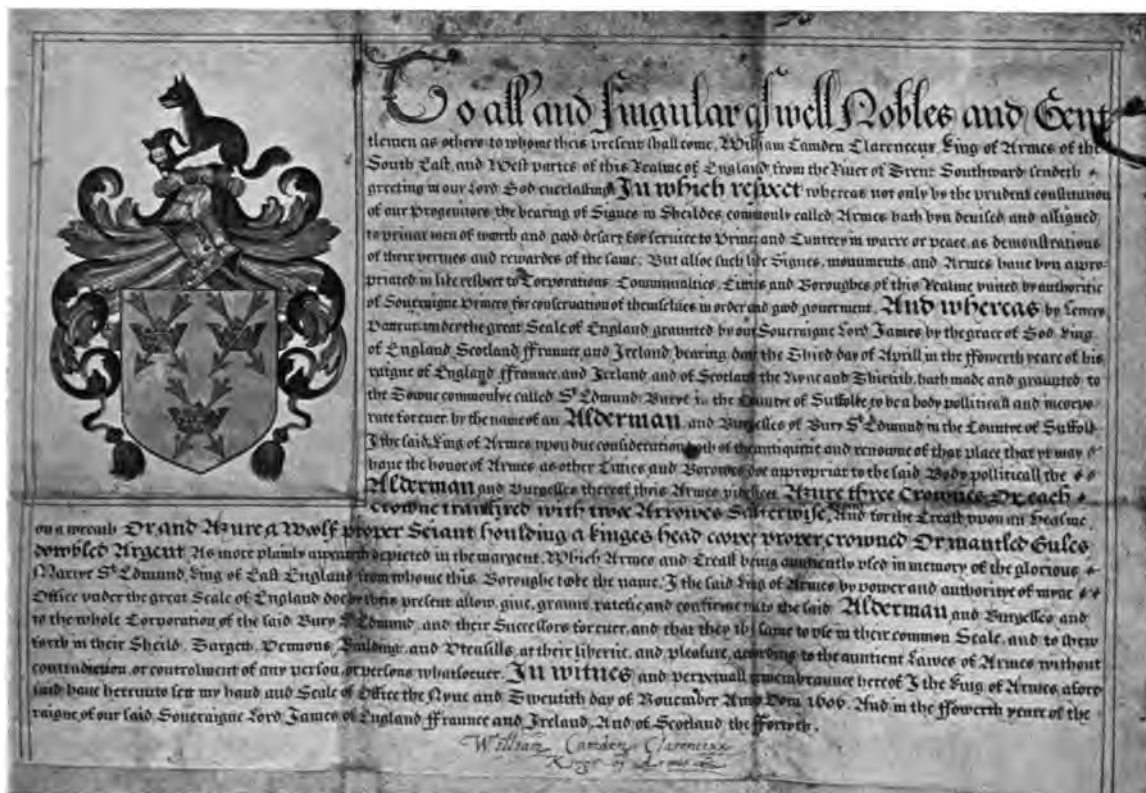 To all and singular aswell Nobles and Gent
tlemen as others to whome theis present shall come, William Camden Clarenceux King of Armes of the
South East and West partes of this Realme of England from the River of Trent Southward sendeth
greeting in our Lord God everlasting. In which respect whereas not only by the prudent constitution
of our Progenitors the bearing of Signes in Sheildes commonly called Armes hath byn devised and assigned
to privat men of worth and good desart for service to Prince and Cuntrey in warre or peace, as demonstrations
of their vertues and rewardes of the same: But allso such like Signes, monuments, and Armes have byn appro-
priated in like respect to Corporations Communalties, Citties and Boroughes of this Realme united by authoritie
of Soveraigne Princes for conservation of themselves in order and good goverment. And whereas by Letters
Patent under the great Seale of England graunted by our Soveraigne Lord James by the grace of God King
of England Scotland ffraunce and Ireland, bearing date the Third day of Aprill in the ffowerth yeare of his
raigne of England ffraunce and Ireland and of Scotland the Nyne and Thirtith, hath made and graunted to
the Towne commonlye called St Edmund Burye in the Countye of Suffolke, to be a body politicall and incorpo-
rate for ever, by the name of an Alderman and Burgesses of Bury St Edmund in the Countye of Suffolk
I the said King of Armes upon due consideration both of the antiquitie and renowne of that place that yt may
have the honor of Armes as other Citties and Borowes doe appropriat to the said Body politicall the
Alderman and Burgesses thereof theis Armes Azure three Crownes Or, each
Crowne transfixed with twoe Arrowes Salterwise, And for the Creast upon an Healme
on a wreath Or, and Azure, a Woolf proper Seiant houlding a kinges head proper, crowned Or, mantled Gules
dowbled Argent. As more plainly depicted in the margent. Which Armes and Creast being auntiently used in memory of the glorious
Martyr St Edmund, King of East England from whome this Boroughe tooke the name, I the said King of Armes by power and authoritye of myne
Office under the great Seale of England doe by theis present allow, give, graunt, ratefie, and confirme unto the said Alderman and Burgesses and
to the whole Corporation of the said Bury St Edmund, and their Successors for ever, and that they the same to use in their common Seale, and to shew
forth in their Sheild, Targett, Pennons, Building, and Utensills, at their libertie, and pleasure, according to the auntient Lawes of Armes without
contradiction, or controlment of any person, or persons whatsoever. In witnes and perpetuall remembraunce here of I the King of Armes afore
said have hereunto sett my hand and Seale of Office the Nyne and Twentith day of November Anno Dom 1606. And in the ffowerth yeare of the
raigne of our said Soveraigne Lord James of England ffraunce and Ireland, And of Scotland the ffortyth.
William Camden Clarenceux
King of Armes